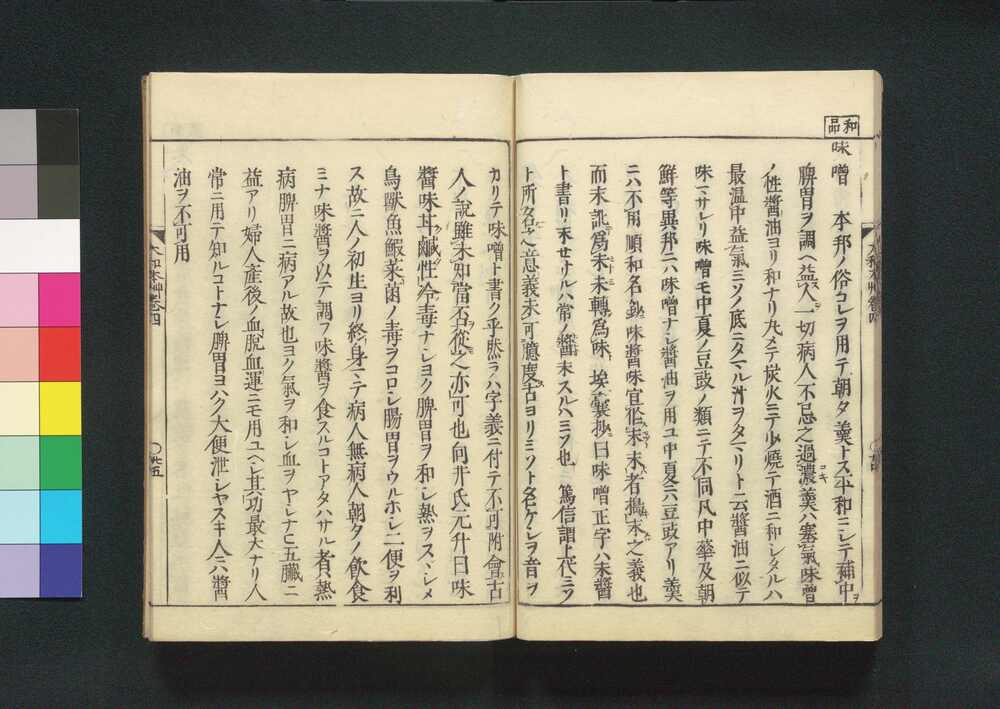 和品
味噌 本邦ノ俗コレヲ用テ朝夕羹トス平和ニシテ補中ヲ
脾胃ヲ調ヘ益人一切病人不忌之過濃羹ハ塞氣味噌
ノ性醬油ヨリ和ナリ丸メテ炭火ニテ少焼テ酒ニ和シタルハ
最温中益氣ミソノ底ニタマル汁ヲタマリト云醬油ニ似テ
味マサレリ味噌モ中夏ノ豆豉ノ類ニテ不同凡中華及朝
鮮等異邦ニハ味噌ナシ醬油ヲ用ユ中夏ニハ豆豉アリ羹
ニハ不用 順和名鈔 味醬味宜作末末者搗末之義也
而末訛爲未未轉爲味 埃囊抄曰味噌正字ハ末醬
ト書リ末セサルハ常ノ醬末スルハミソ也 篤信謂上代ミソ
ト所名之意義未可臆度古ヨリミソト名ケシヲ音ヲ
カリテ味噌ト書ク乎然ラハ字義ニ付テ不可附會古
人ノ說雖未知當否從之亦可也向井氏元升曰味
醬味甘鹹性冷毒ナシヨク脾胃ヲ和シ熱ヲスヽシメ
鳥獸魚鰕菜菌ノ毒ヲコロシ腸胃ヲウルホシ二便ヲ利
ス故ニ人ノ初生ヨリ終身マテ病人無病人朝夕ノ飲食
ミナ味醬ヲ以テ調フ味醬ヲ食スルコトアタハサル者ハ熱
病脾胃ニ病アル故也ヨク氣ヲ和シ血ヲヤシナヒ五臟ニ
益アリ婦人産後ノ血脱血運ニモ用ユヘシ其功最大ナリ人
常ニ用テ知ルコトナシ脾胃ヨハク大便泄シヤスキ人ハ醬
油ヲ不可用
大和本草卷四
○廿五